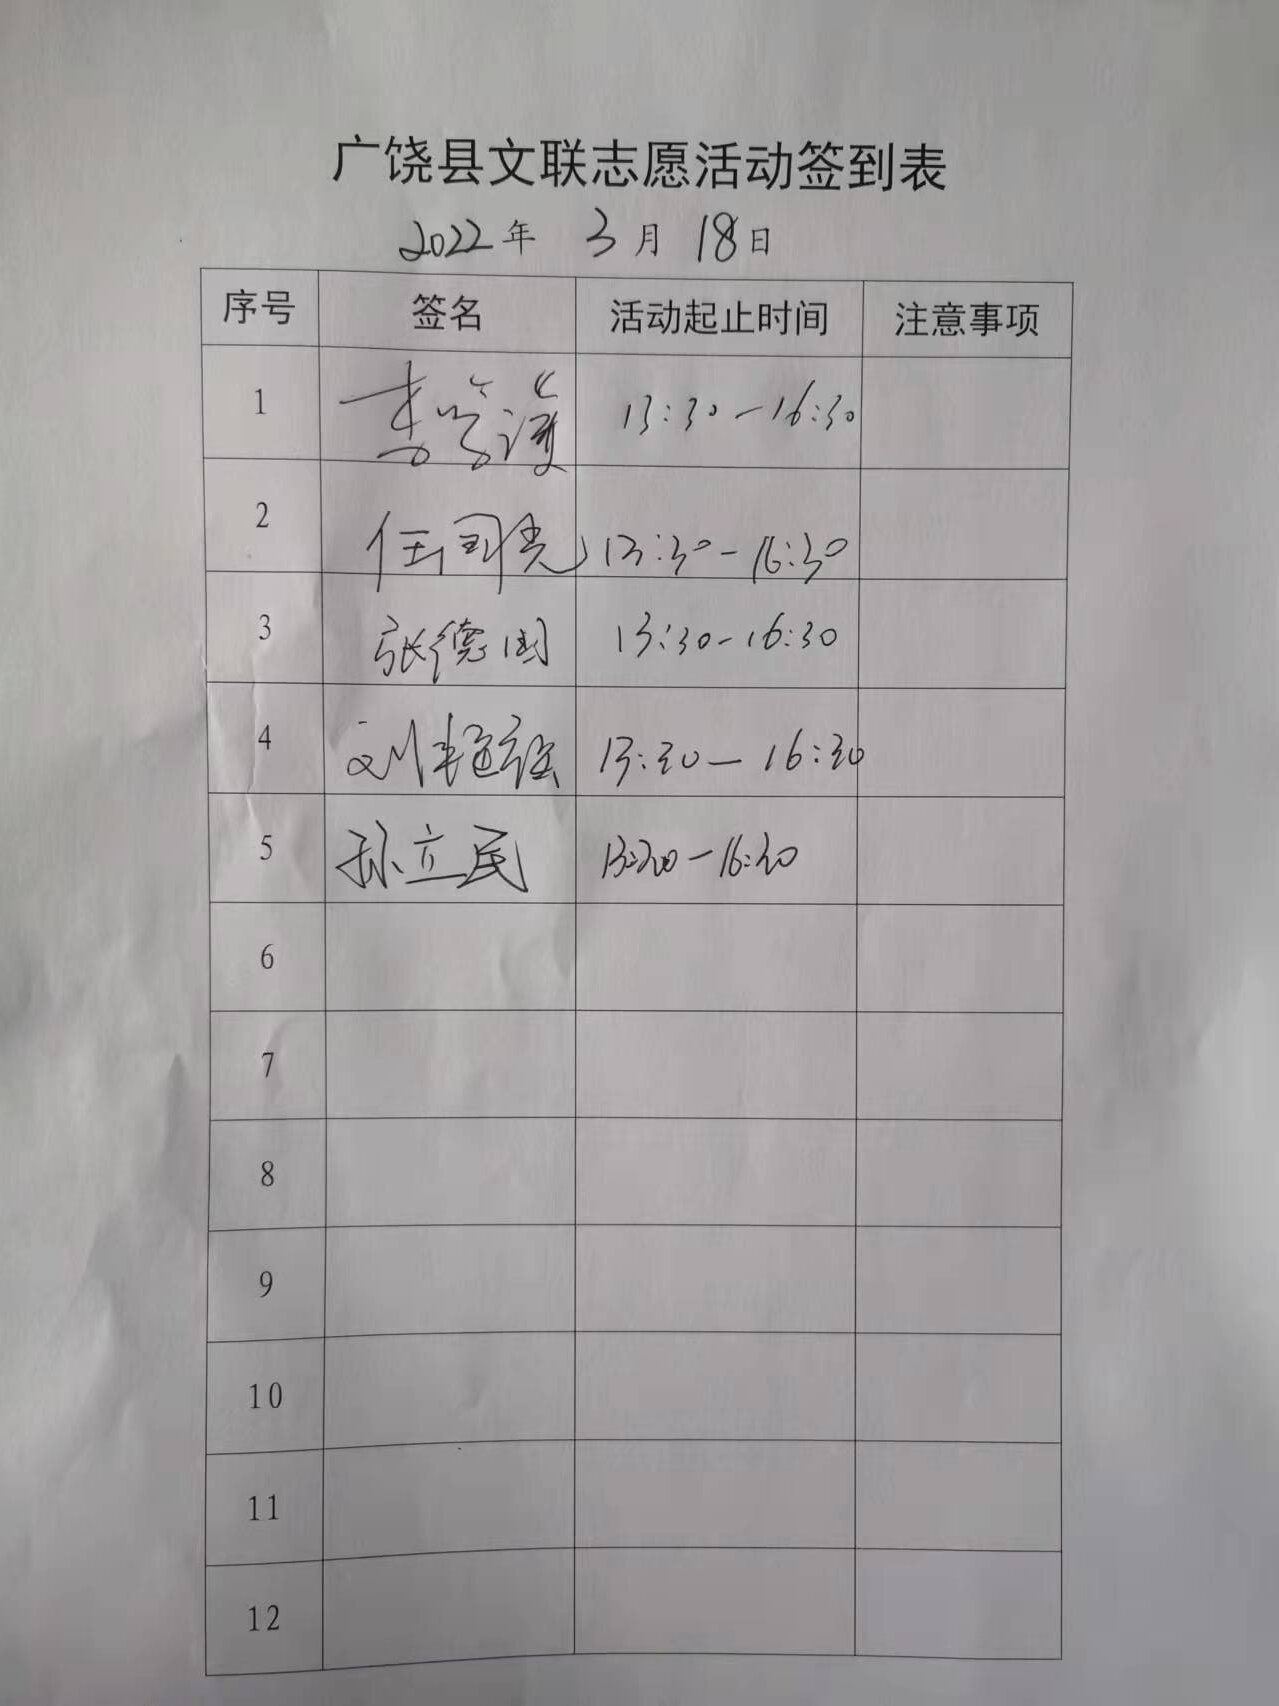 广饶县文联志愿活动签到表
2022年 3月 18日
序号 签名 活动起止时间 注意事项
1 李 13:30-16:30
2 任 13:30-16:30
3 张德国 13:30-16:30
4 刘艳 13:30-16:30
5 孙立民 13:30-16:30
6
7
8
9
10
11
12